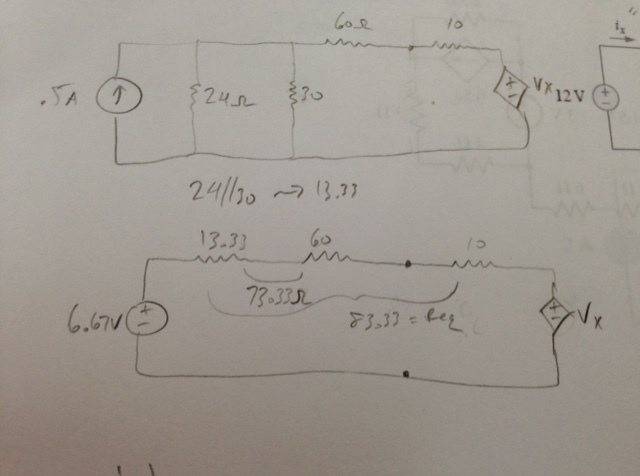 60Ω 10
.5A 24Ω 30 Vx 12V ix
24//30 → 13.33
13.33 60 10
73.33Ω
6.67V 83.33 = Req Vx